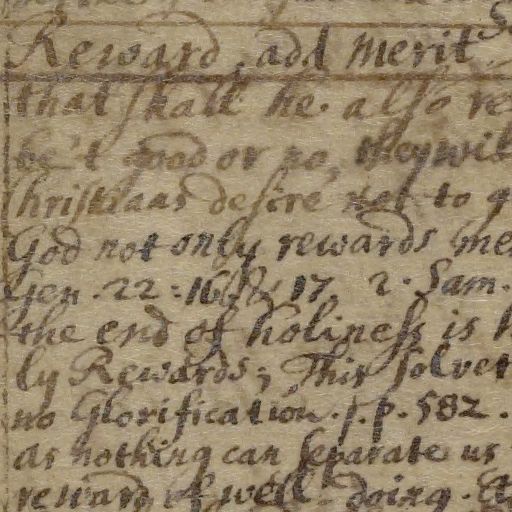 Reward, add merit
that shall he. also re
be't good or no, they wil
Christiaas desire not to g
God not only rewards mer
Gen. 22:16 & 17 2. Sam.
the end of holiness is h
ly Rewards; This solvet
no Glorification. s.p. 582.
as nothing can separate us
reward of well-doing.